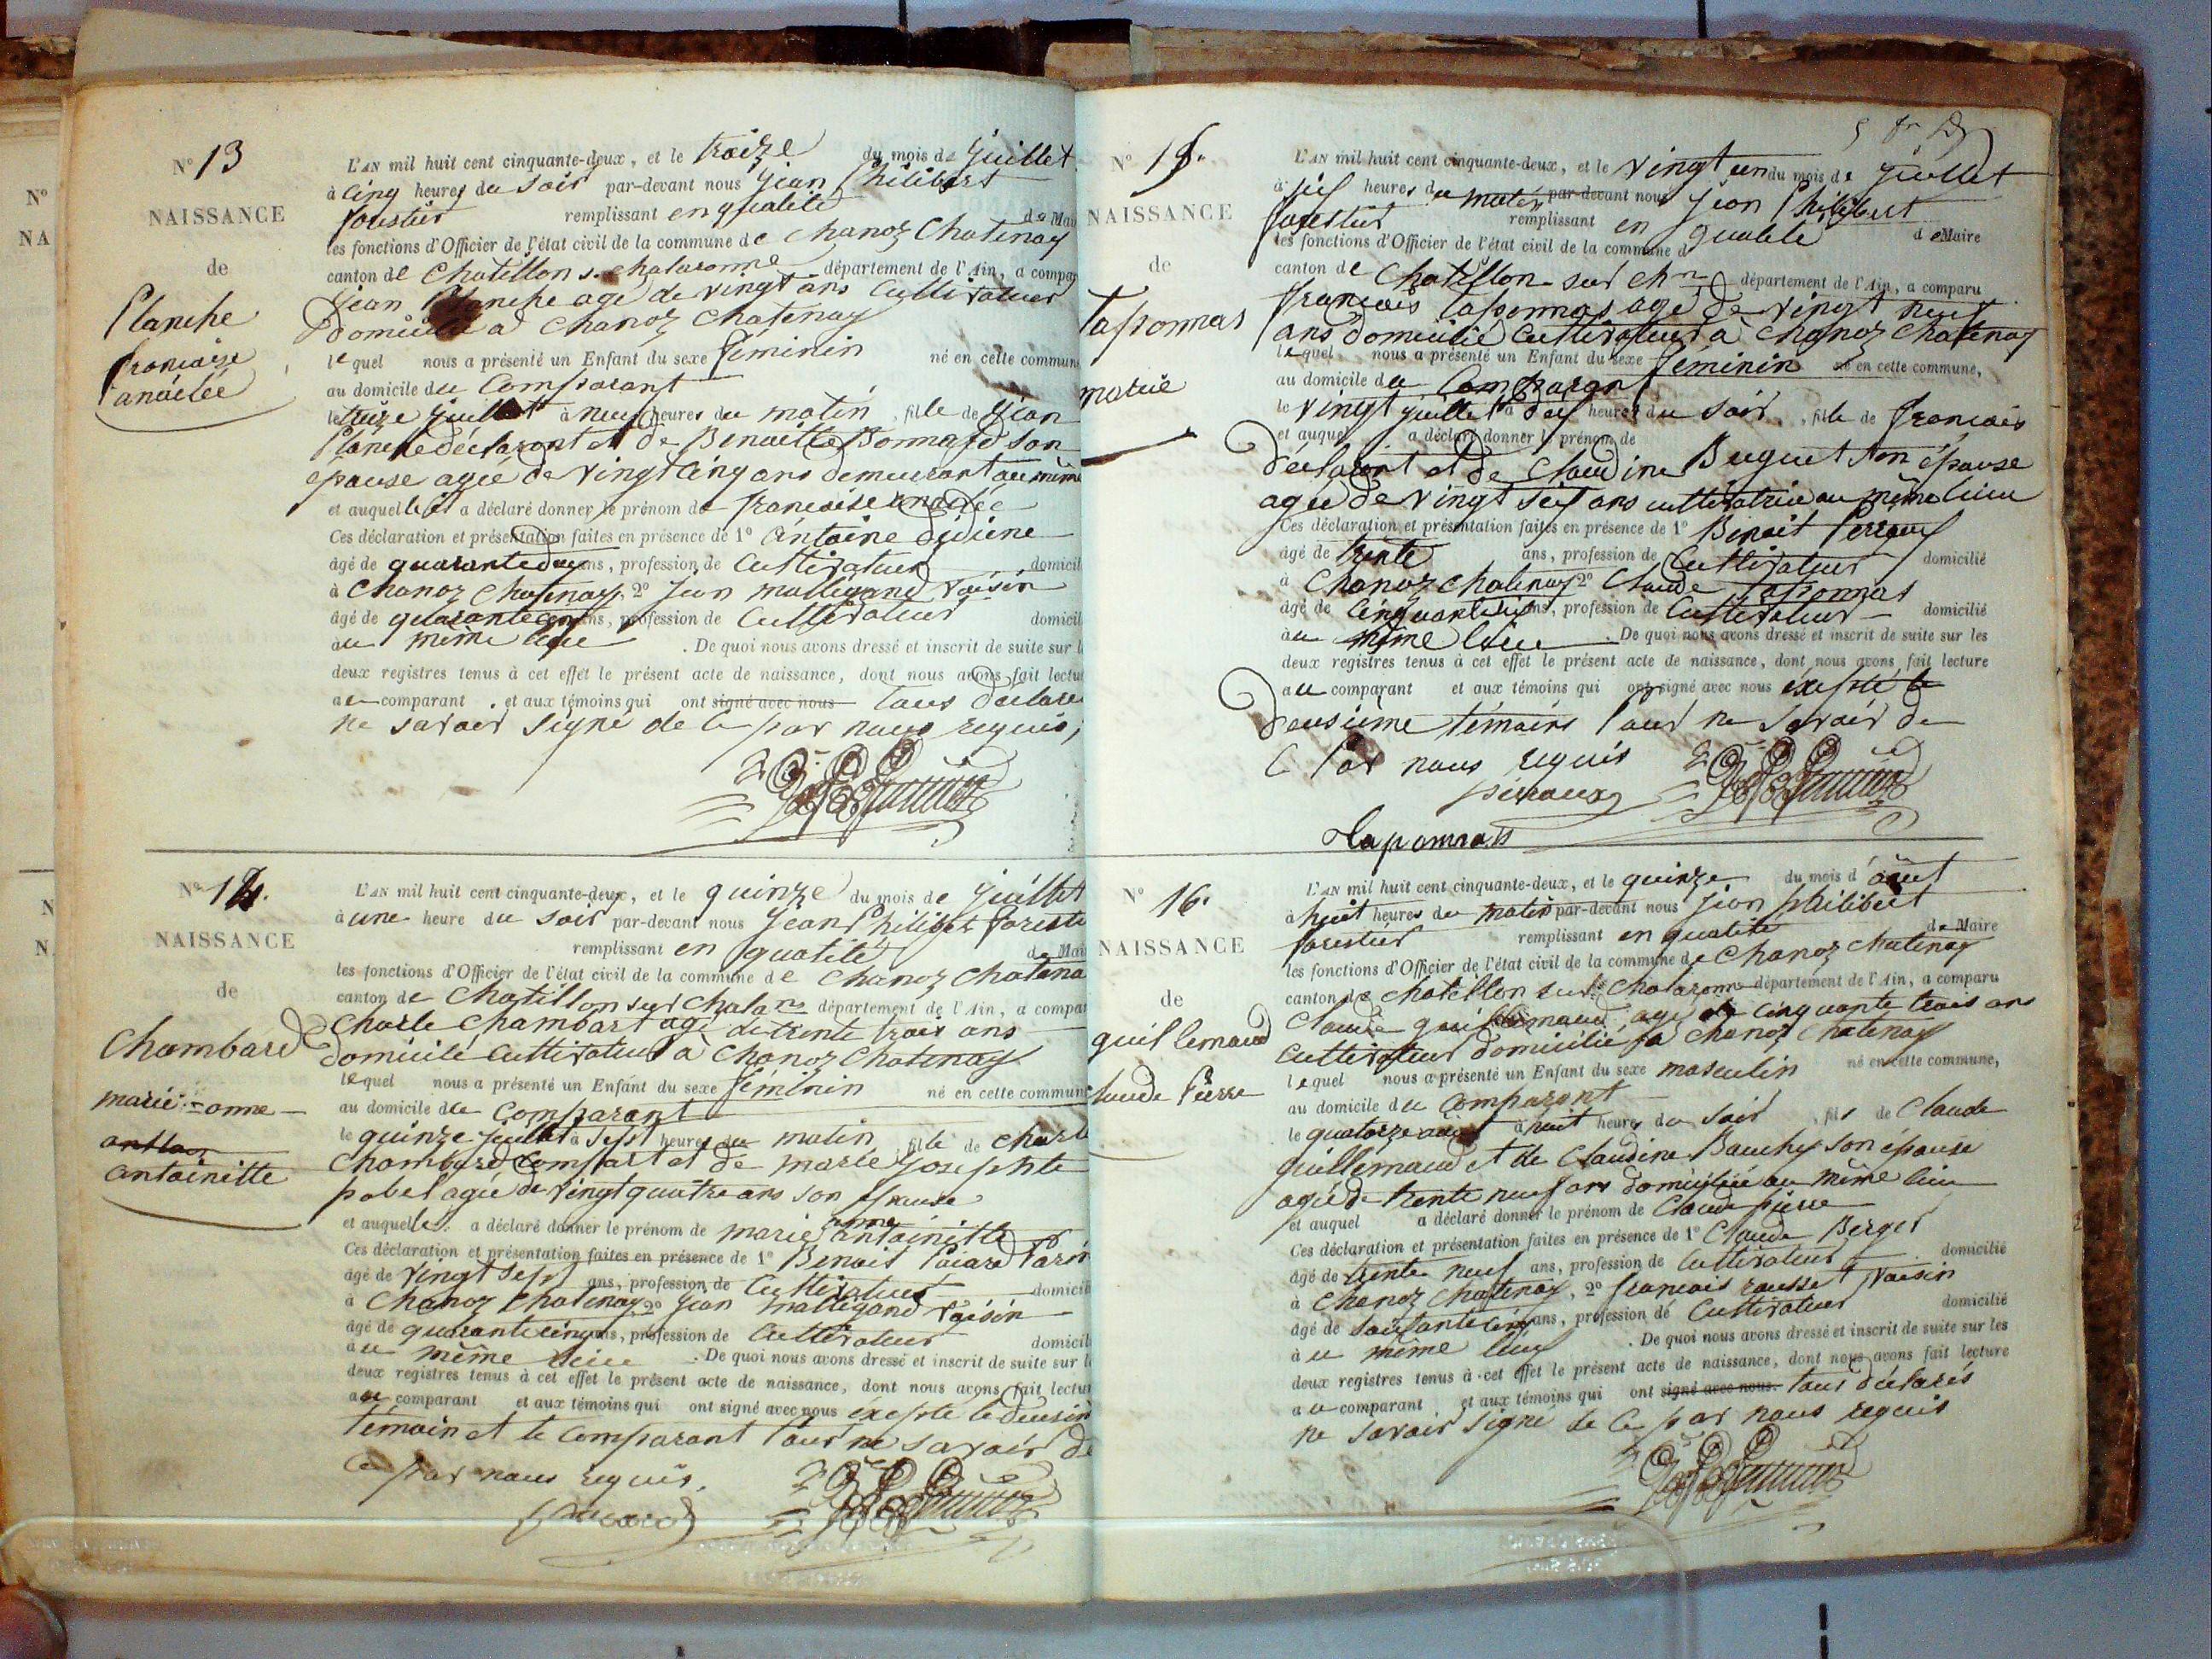 N° 13
NAISSANCE
de
Planche
francoise
L'AN mil huit cent cinquante-deux, et le treize du mois de Juillet
à cinq heures du soir par-devant nous Jean Philibert
forestier remplissant en qualité de Mai
les fonctions d'Officier de l'état civil de la commune de Chanoz Chatenay
canton de Chatillon s. chalaronne département de l'Ain, a compar
Jean Planche age de vingt ans Cultivateur
domicilié a Chanoz Chatenay
lequel nous a présenté un Enfant du sexe féminin né en cette commune
au domicile du Comparant
le treize Juillet à neuf heures du matin, fille de Jean
Planche déclarant et de Benoitte Bonnard son
épouse agée de vingt cinq ans demeurant au même
et auquel il a déclaré donner le prénom de francoise
Ces déclaration et présentation faites en présence de 1° Antoine
âgé de quarante deux ans, profession de Cultivateur domicil
à Chanoz Chatenay. 2° Jean malligand voisin
âgé de quarante cinq ans, profession de Cultivateur domicil
au même lieu . De quoi nous avons dressé et inscrit de suite sur l
deux registres tenus à cet effet le présent acte de naissance, dont nous avons fait lectur
au comparant et aux témoins qui ont signé avec nous tous déclaré
ne savoir signé de ce par nous requis,
N° 14.
NAISSANCE
de
Chambard
marie-anne
antoinette
L'AN mil huit cent cinquante-deux, et le quinze du mois de Juillet
à une heure du soir par-devant nous Jean Philibert foresti
remplissant en qualité de Mai
les fonctions d'Officier de l'état civil de la commune de Chanoz Chatena
canton de Chatillon sur Chalar département de l'Ain, a compar
Charle Chambart agé de trente trois ans
domicilé cultivateur à Chanoz Chatenay
lequel nous a présenté un Enfant du sexe féminin né en cette commun
au domicile du Comparant
le quinze Juillet à sept heures du matin, fille de charle
Chambard Compart et de marie Josephte
pobel agée de vingt quatre ans son épouse
et auquelle a déclaré donner le prénom de marie anne antoinette
Ces déclaration et présentation faites en présence de 1° Benoit
âgé de vingt sept ans, profession de Cultivateur domicil
à Chanoz Chatenay 2° Jean mallegand voisin
âgé de quarante cinq ans, profession de Cultivateur domicil
au même lieu . De quoi nous avons dressé et inscrit de suite sur l
deux registres tenus à cet effet le présent acte de naissance, dont nous avons fait lectur
au comparant et aux témoins qui ont signé avec nous éxepté le deusieme
temoin et le Comparant Pour ne savoir de
ce par nous requis.
N° 15.
NAISSANCE
de
Taponnas
marie
L'AN mil huit cent cinquante-deux, et le vingt un du mois de Juillet
à six heures du matin par-devant nous Jean Philibert
forestier remplissant en qualité de Maire
les fonctions d'Officier de l'état civil de la commune d
canton de Chatillon sur chne département de l'Ain, a comparu
francois Taponnas agé de vingt neuf
ans domicilié Cultivateur à Chanoz Chatenay
lequel nous a présenté un Enfant du sexe féminin né en cette commune,
au domicile du Comparant
le vingt Juillet à dix heures du soir, fille de francois
et auquel a déclaré donner le prénom de
déclarant et de Claudine Buguet son épouse
agée de vingt six ans cultivatrice au même lieu
Ces déclaration et présentation faites en présence de 1° Benoit
âgé de trente ans, profession de Cultivateur domicilié
à Chanoz Chatenay 2° Claude Taponnas
âgé de ans, profession de Cultivateur domicilié
au même lieu . De quoi nous avons dressé et inscrit de suite sur les
deux registres tenus à cet effet le présent acte de naissance, dont nous avons fait lecture
au comparant et aux témoins qui ont signé avec nous éxepté le
deusième témoins Pour ne savoir de
ce Par nous requis
Taponnas
N° 16.
NAISSANCE
de
guillemaud
claude Pierre
L'AN mil huit cent cinquante-deux, et le quinze du mois d'aout
à huit heures du matin par-devant nous Jean philibert
forestier remplissant en qualité de Maire
les fonctions d'Officier de l'état civil de la commune de Chanoz Chatenay
canton de Chatillon sur Chalaronne département de l'Ain, a comparu
Claude guillemaud agé de cinquante trois ans
Cultivateur domicilié à Chanoz Chatenay
lequel nous a présenté un Enfant du sexe masculin né en cette commune,
au domicile du Comparant
le quatorze aout à huit heures du soir, fils de Claude
guillemaud et de Claudine Bauchy son épouse
agée de trente neuf ans domiciliée au même lieu
et auquel a déclaré donner le prénom de Claude pierre
Ces déclaration et présentation faites en présence de 1° Claude Berger
âgé de trente neuf ans, profession de Cultivateur domicilié
à Chanoz Chatenay, 2° francois rousset voisin
âgé de soixante cinq ans, profession de Cultivateur domicilié
au même lieu . De quoi nous avons dressé et inscrit de suite sur les
deux registres tenus à cet effet le présent acte de naissance, dont nous avons fait lecture
au comparant et aux témoins qui ont signé avec nous. tous déclarés
ne savoir signe de ce par nous requis